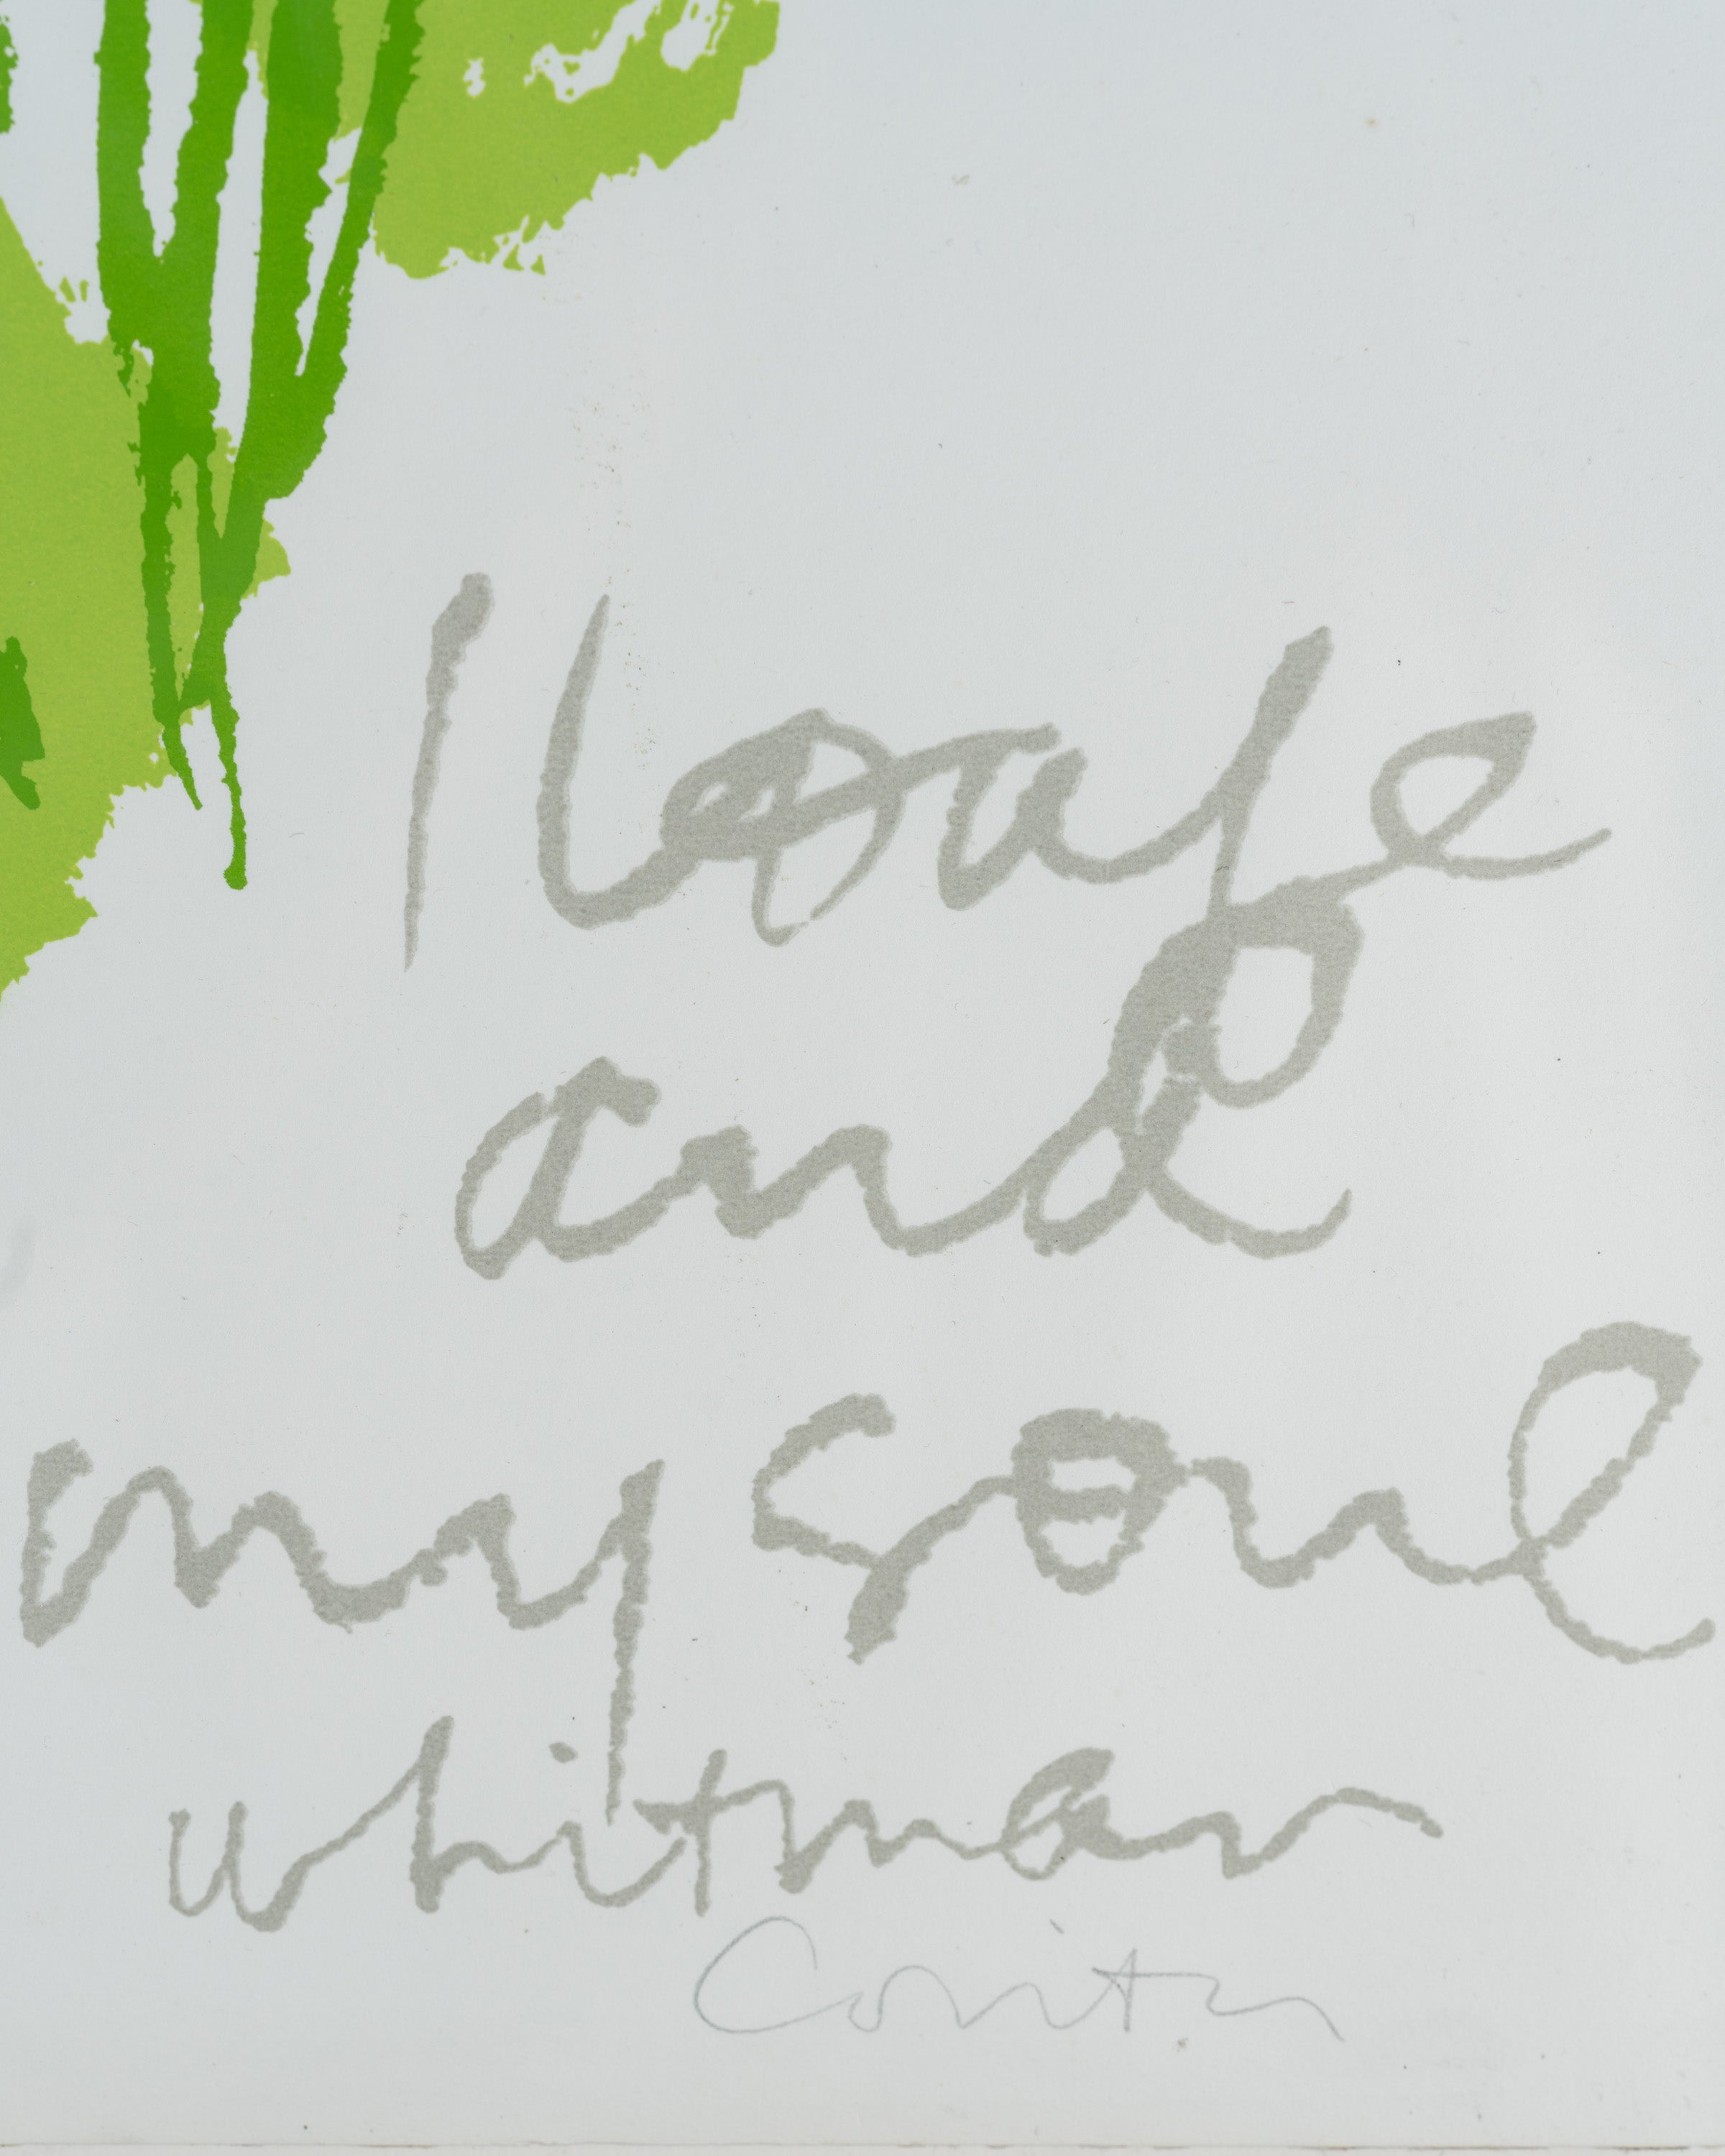 I loafe
and
my soul
whitman
Corita